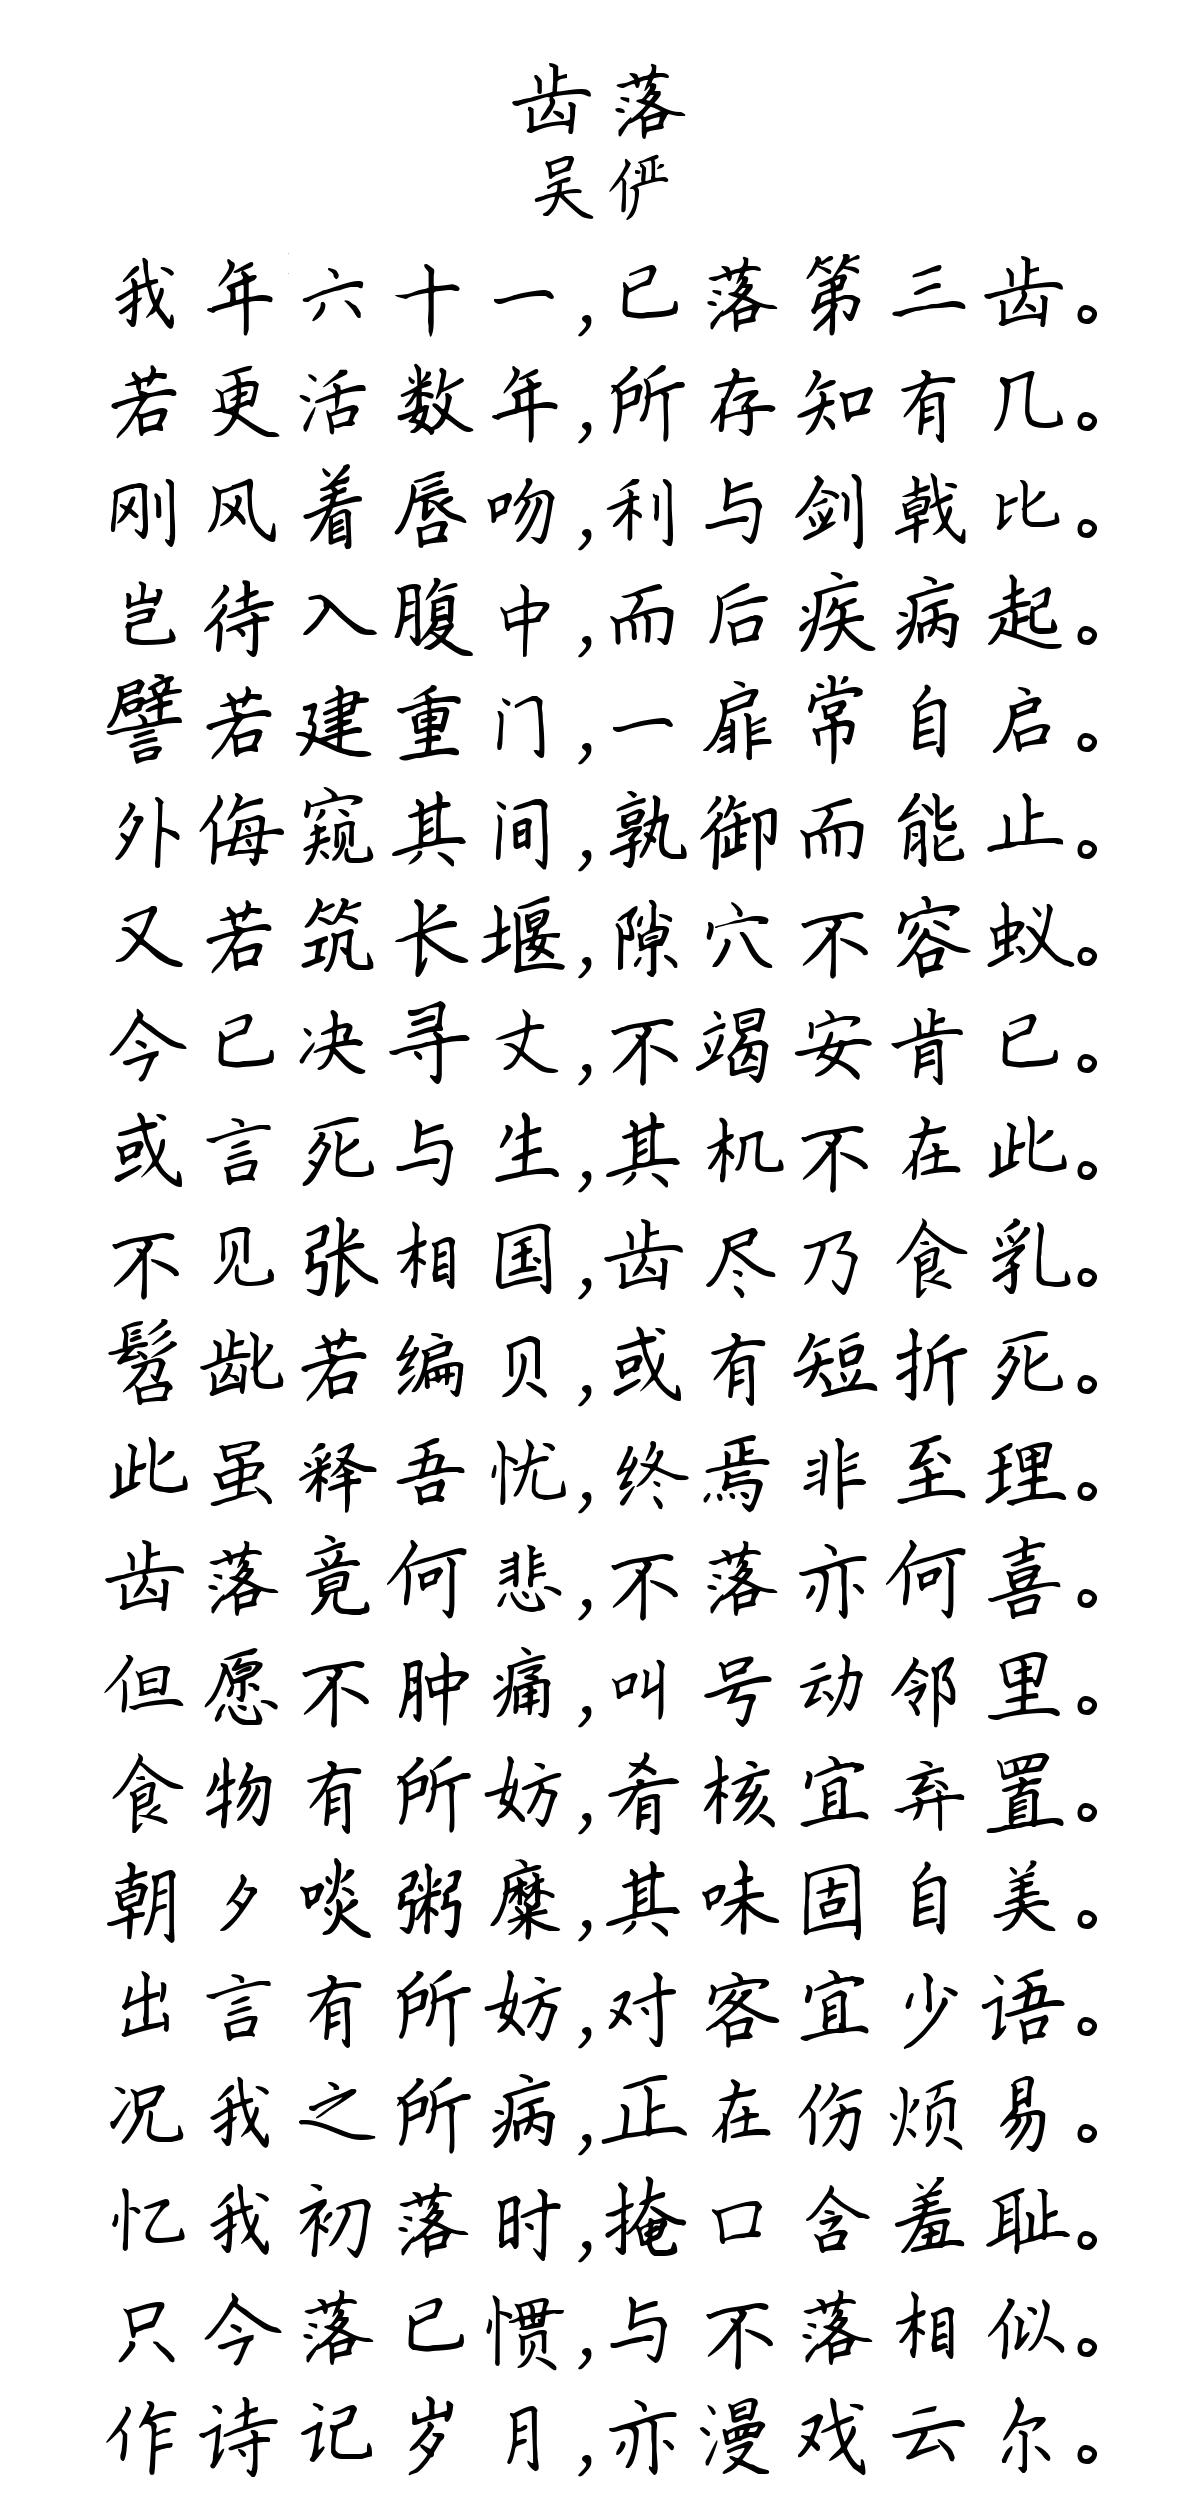 齿落
吴俨
我年六十一,已落第三齿。
若更活数年,所存知有几。
刚风着唇吻,利与剑戟比。
岂待入腹中,而后疾病起。
譬若建重门,一扉常自启。
外侮窥其间,孰御而能止。
又若筑长堰,隙穴不容蚁。
今已决寻丈,不竭安肯已。
或言死与生,其机不在此。
不见张相国,齿尽乃食乳。
髫龀若编贝,或有短折死。
此虽释吾忧,终焉非至理。
齿落竟何悲,不落亦何喜。
但愿不肿痛,叫号动邻里。
食物有所妨,肴核宜弃置。
朝夕啖粥糜,其味固自美。
出言有所妨,对客宜少语。
况我之所病,正在伤烦易。
忆我初落时,掩口含羞耻。
只今落已惯,与不落相似。
作诗记岁月,亦漫戏云尔。